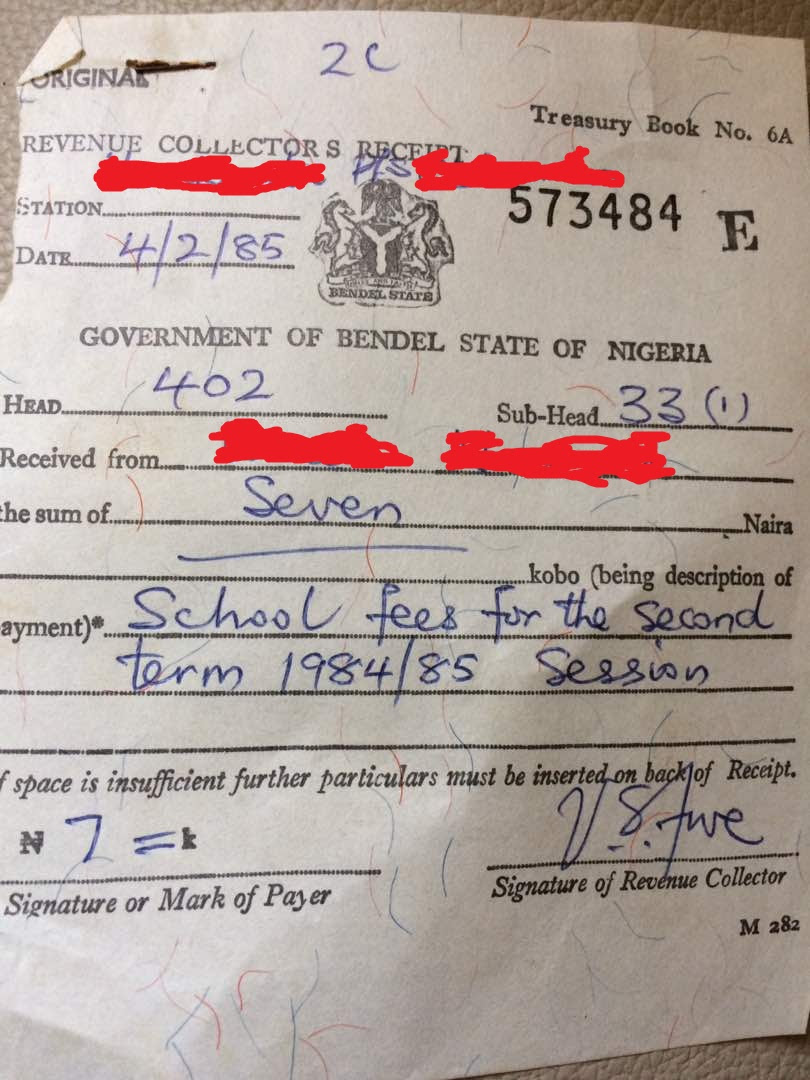 2C
ORIGINAL
Treasury Book No. 6A
REVENUE COLLECTORS RECEIPT
STATION
573484 E
DATE 4/2/85
BENDEL STATE
GOVERNMENT OF BENDEL STATE OF NIGERIA
HEAD 402 Sub-Head 33 (1)
Received from
the sum of Seven Naira
kobo (being description of
ayment)* School fees for the second
term 1984/85 Session
f space is insufficient further particulars must be inserted on back of Receipt.
₦ 7 = k
Signature or Mark of Payer
Signature of Revenue Collector
M 282